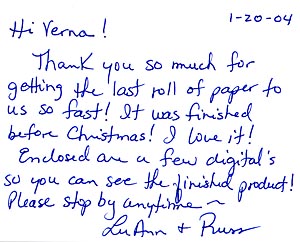 1-20-04
Hi Verna!
Thank you so much for
getting the last roll of paper to
us so fast! It was finished
before Christmas! I love it!
Enclosed are a few digital's
so you can see the finished product!
Please stop by anytime ~
LuAnn + Russ